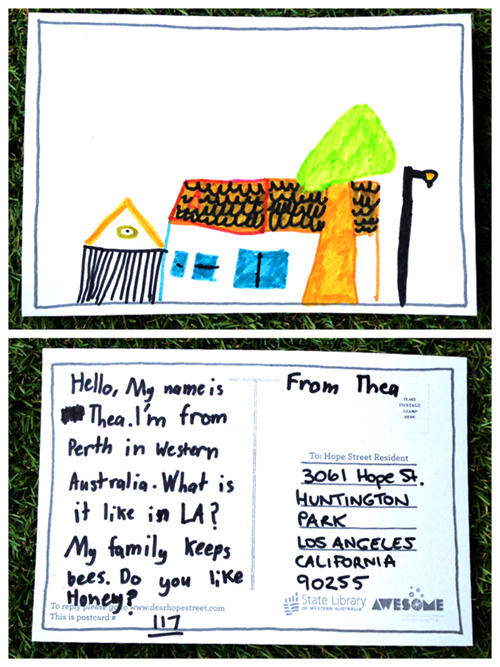 Hello, My name is
Thea. I'm from
Perth in Western
Australia. What is
it like in LA?
My family keeps
bees. Do you like
Honey?
To reply please go to www.dearhopestreet.com
This is postcard #
117
From Thea
PLACE
POSTAGE
STAMP
HERE
To: Hope Street Resident
3061 Hope St.
HUNTINGTON
PARK
LOS ANGELES
CALIFORNIA
90255
State Library
OF WESTERN AUSTRALIA
AWESOME